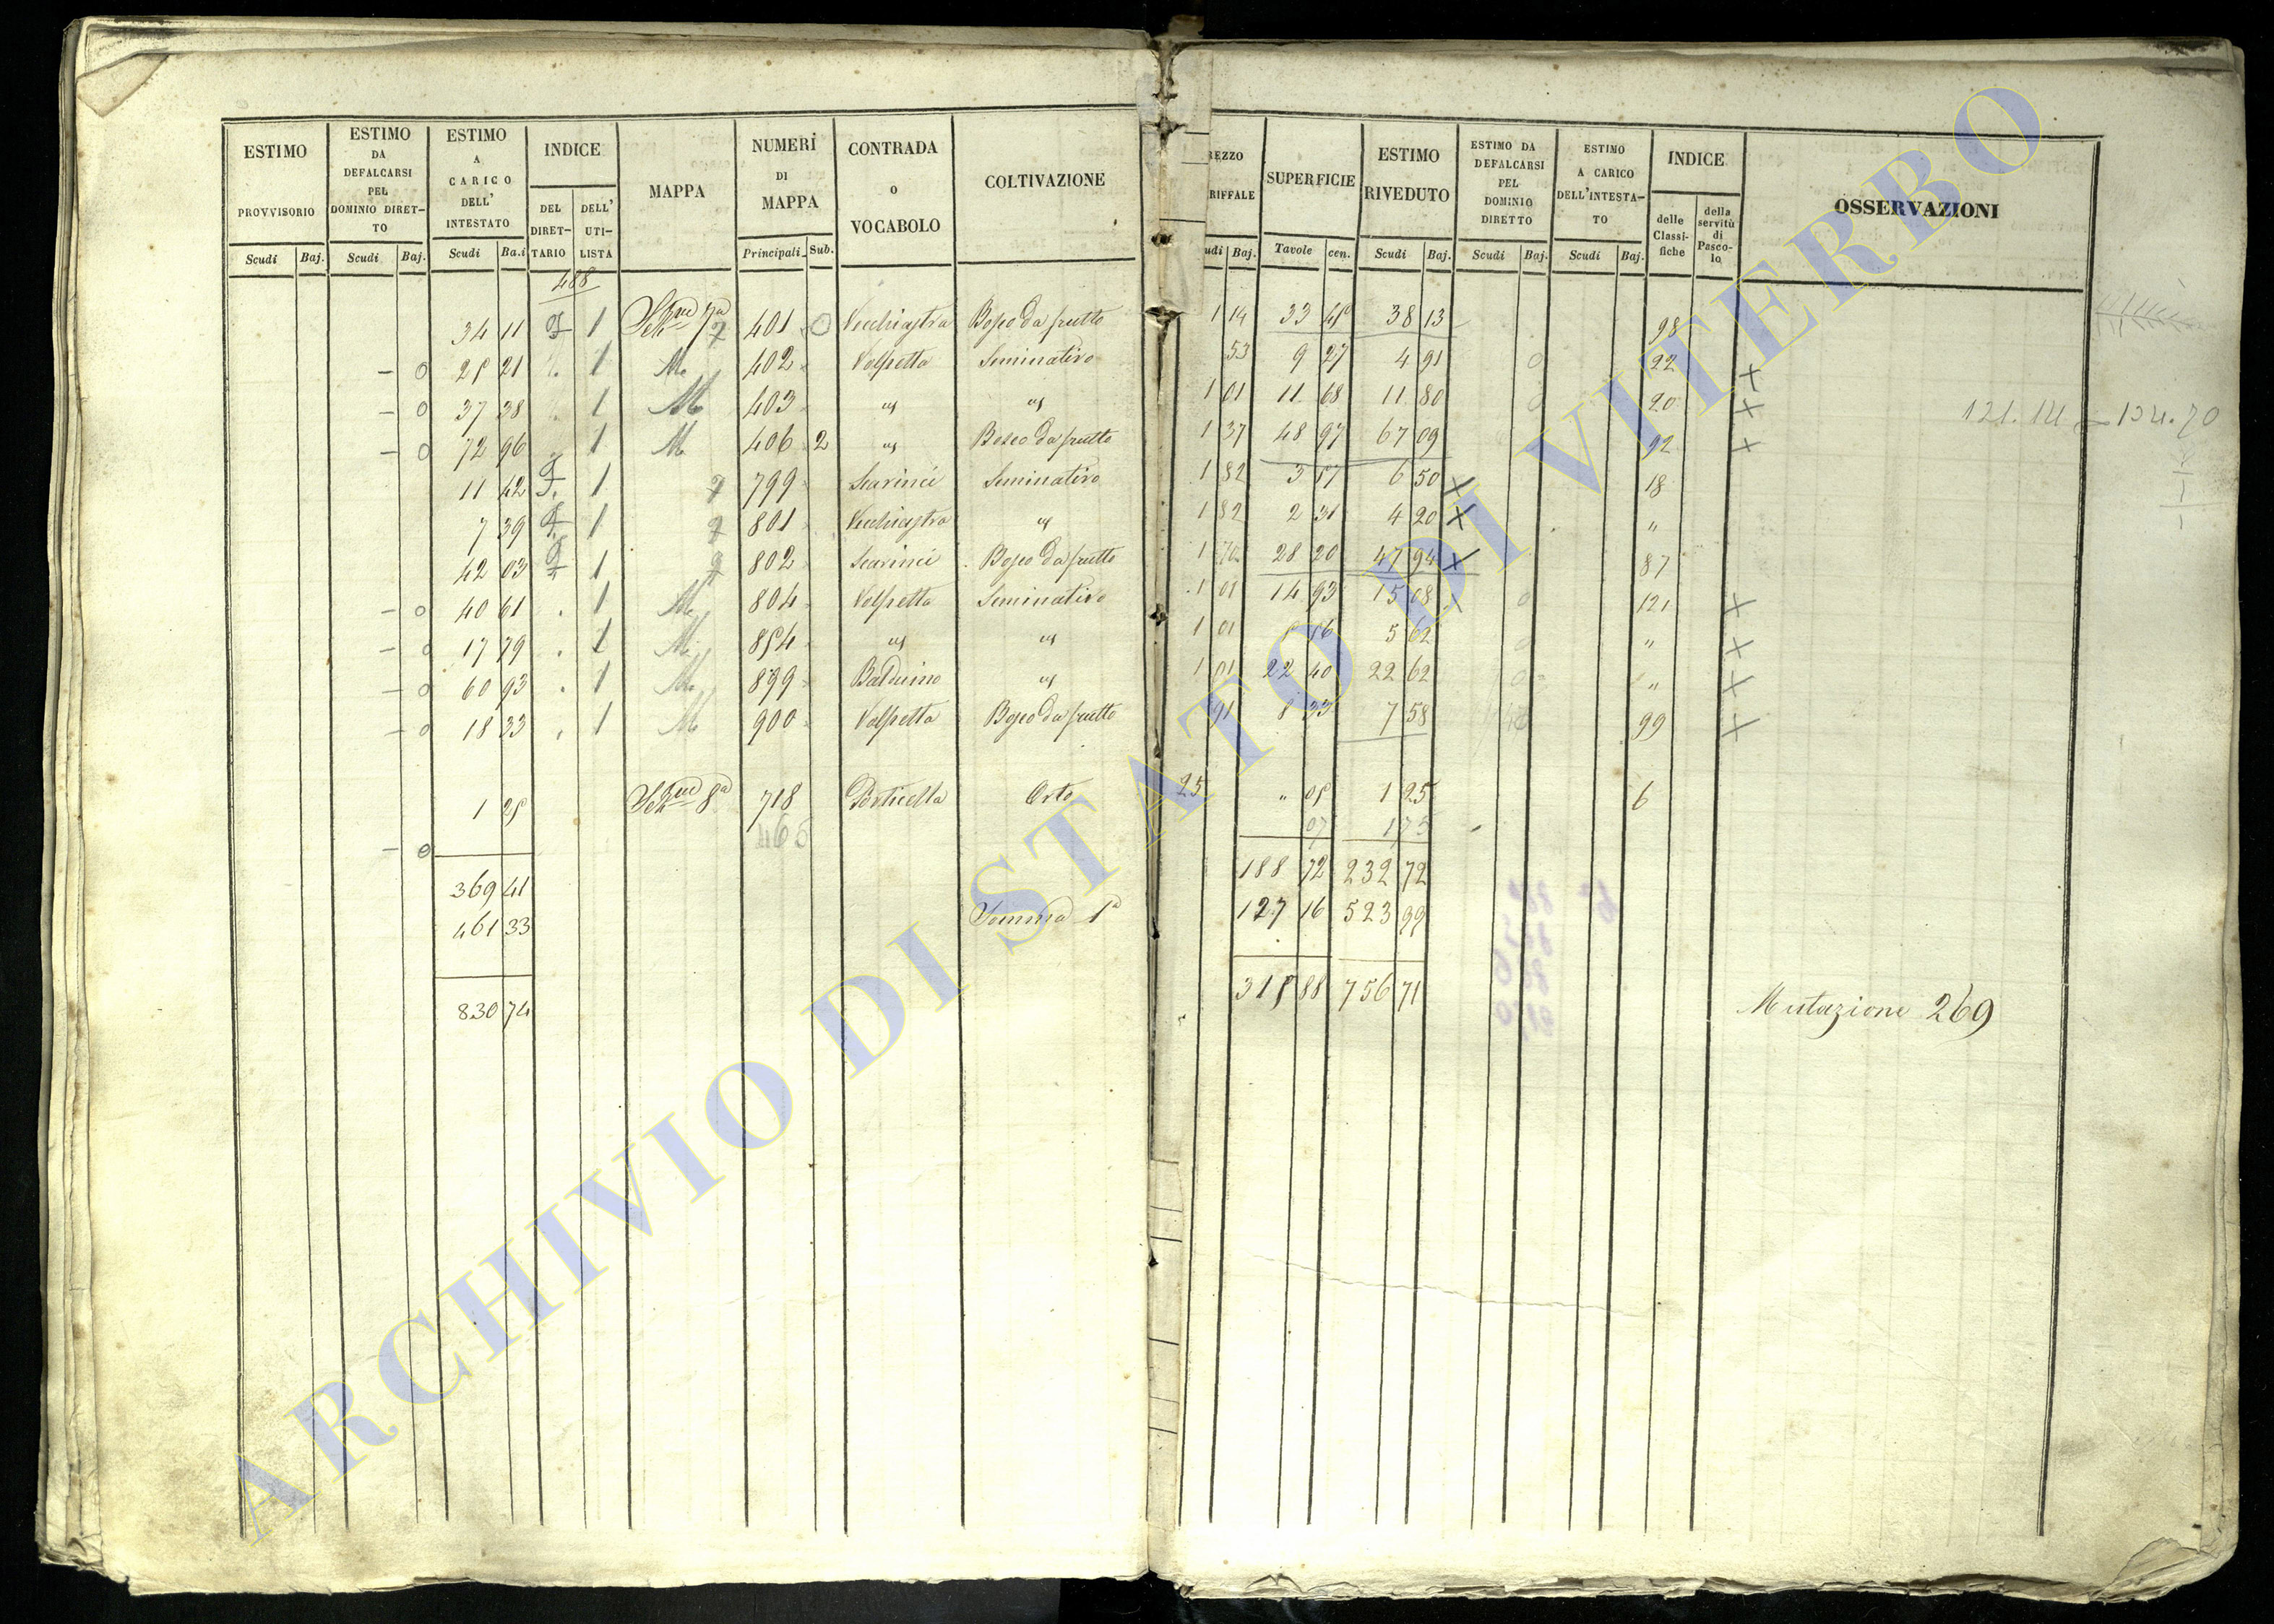 ESTIMO PROVVISORIO
ESTIMO DA DEFALCARSI PEL DOMINIO DIRET-TO
ESTIMO A CARICO DELL' INTESTATO
INDICE
DEL DIRET-TARIO
DELL' UTI-LISTA
MAPPA
NUMERI DI MAPPA
CONTRADA O VOCABOLO
COLTIVAZIONE
REZZO RIFFALE
SUPERFICIE
ESTIMO RIVEDUTO
ESTIMO DA DEFALCARSI PEL DOMINIO DIRETTO
ESTIMO A CARICO DELL'INTESTA-TO
INDICE
delle Classi-fiche
della servitù di Pasco-lo
OSSERVAZIONI
Scudi Baj. Scudi Baj. Scudi Ba.i Principali Sub. udi Baj. Tavole cen. Scudi Baj. Scudi Baj. Scudi Baj.
488
34 11 1 401 0 Vecchiastra Bosco da frutto 1 14 33 45 38 13 98
- 0 25 21 1 M 402 Volpetta Seminativo 53 9 27 4 91 0 22 x
- 0 37 38 1 M 403 " " 1 01 11 68 11 80 0 20 x
- 0 72 96 1 M 406 2 " Bosco da frutto 1 37 48 97 67 09 92 x
11 42 1 799 Scarinci Seminativo 1 82 3 57 6 50 x 18
7 39 1 801 Vecchiastra " 1 82 2 31 4 20 x "
42 03 1 802 Scarinci Bosco da frutto 1 70 28 20 47 94 x 87
- 0 40 61 1 M 804 Volpetta Seminativo 1 01 14 93 15 08 0 121 x
- 0 17 79 1 M 854 " " 1 01 5 56 5 62 0 " x
- 0 60 93 1 M 899 Balduino " 1 01 22 40 22 62 0 " x
- 0 18 33 1 M 900 Volpetta Bosco da frutto 91 8 33 7 58 99 x
121.14 - 134.70
1 25 718 Porticella Orto 25 " 05 1 25 6
465 07 1 75
- 0
369 41 188 72 232 72
461 33 Somma 1a 127 16 523 99
830 74 315 88 756 71
Mutazione 269
ARCHIVIO DI STATO DI VITERBO